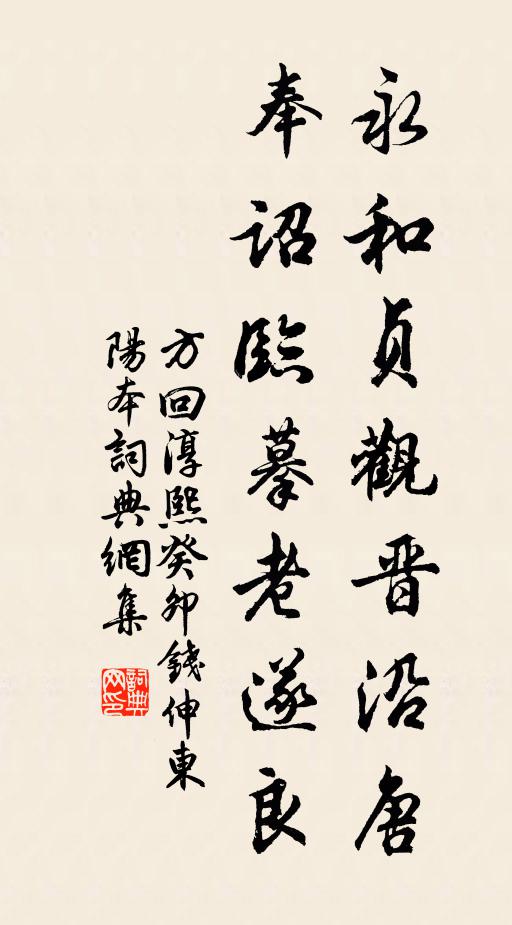 永和貞觀晋沿唐
奉詔臨摹老遂良
方回淳熙癸卯錢伸東
陽本詞典網集
詞典网印